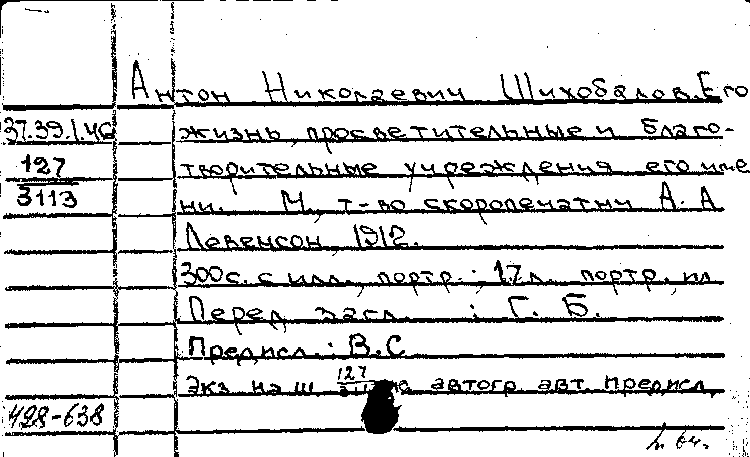 Антон Николаевич Шихобалов. Его
37.39.1.46 жизнь, просветительные и благо-
127 творительные учреждения его име
3113 ни. М., т-во скоропечатни А. А
Левенсон, 1912.
300 с. с илл., портр.; 17 л. портр., ил
Перед загл. : Г. Б.
Предисл.: В. С
Экз на ш. 127 автогр. авт. предисл.
498-638